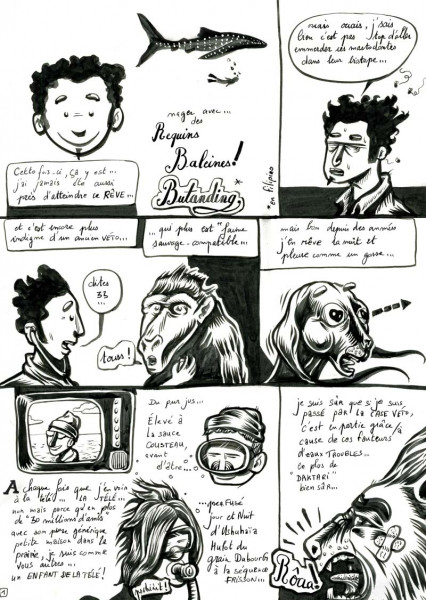 Cette fois-ci, ça y est...
j'ai jamais été aussi
près d'atteindre ce RÊVE...
nager avec...
des
Requins
Baleines!
Butanding*
*en filipino
ouais ouais, j'sais
bien c'est pas top d'aller
emmerder ces mastodontes
dans leur biotope...
et c'est encore plus
indigne d'un ancien VETO...
... qui plus est "faune
sauvage-compatible"...
mais bon depuis des années
j'en RÊVE la nuit et
pleure comme un gosse...
dites
33
...
touss!
A chaque fois que j'en vois
à la télé... LA TÉLÉ...
non mais parce qu'en plus
de "30 millions d'amis"
avec son générique
petite maison dans la
prairie, je suis comme
vous autres...
un ENFANT DE LA TÉLÉ!
Du pur jus...
ÉLEVÉ À
LA SAUCE
COUSTEAU,
avant
d'être...
...perfusé
jour et Nuit
d'Ushuaïa
Hulot du
grain Dubourg
à la séquence
FRISSON...
pschiiit!
je suis sûr que si je suis
passé par LA CASE VETO,
C'EST en partie grâce/à
cause de ces fauteurs
d'eaux TROUBLES...
en plus de
"DAKTARI"
bien sûr...
Rôaa!
1